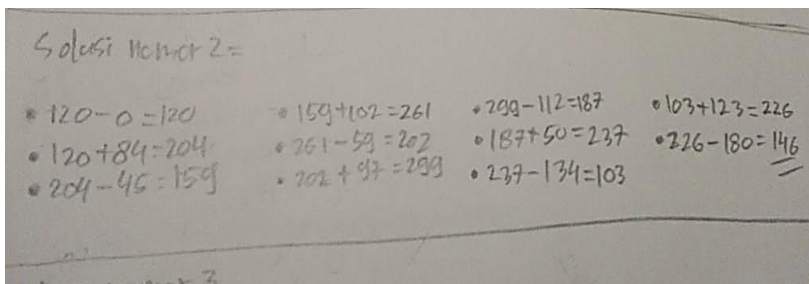 Solusi nomor 2=
• 120-0=120
• 120+84=204
• 204-45=159
• 159+102=261
• 261-59=202
• 202+97=299
• 299-112=187
• 187+50=237
• 237-134=103
• 103+123=226
• 226-180=146
3